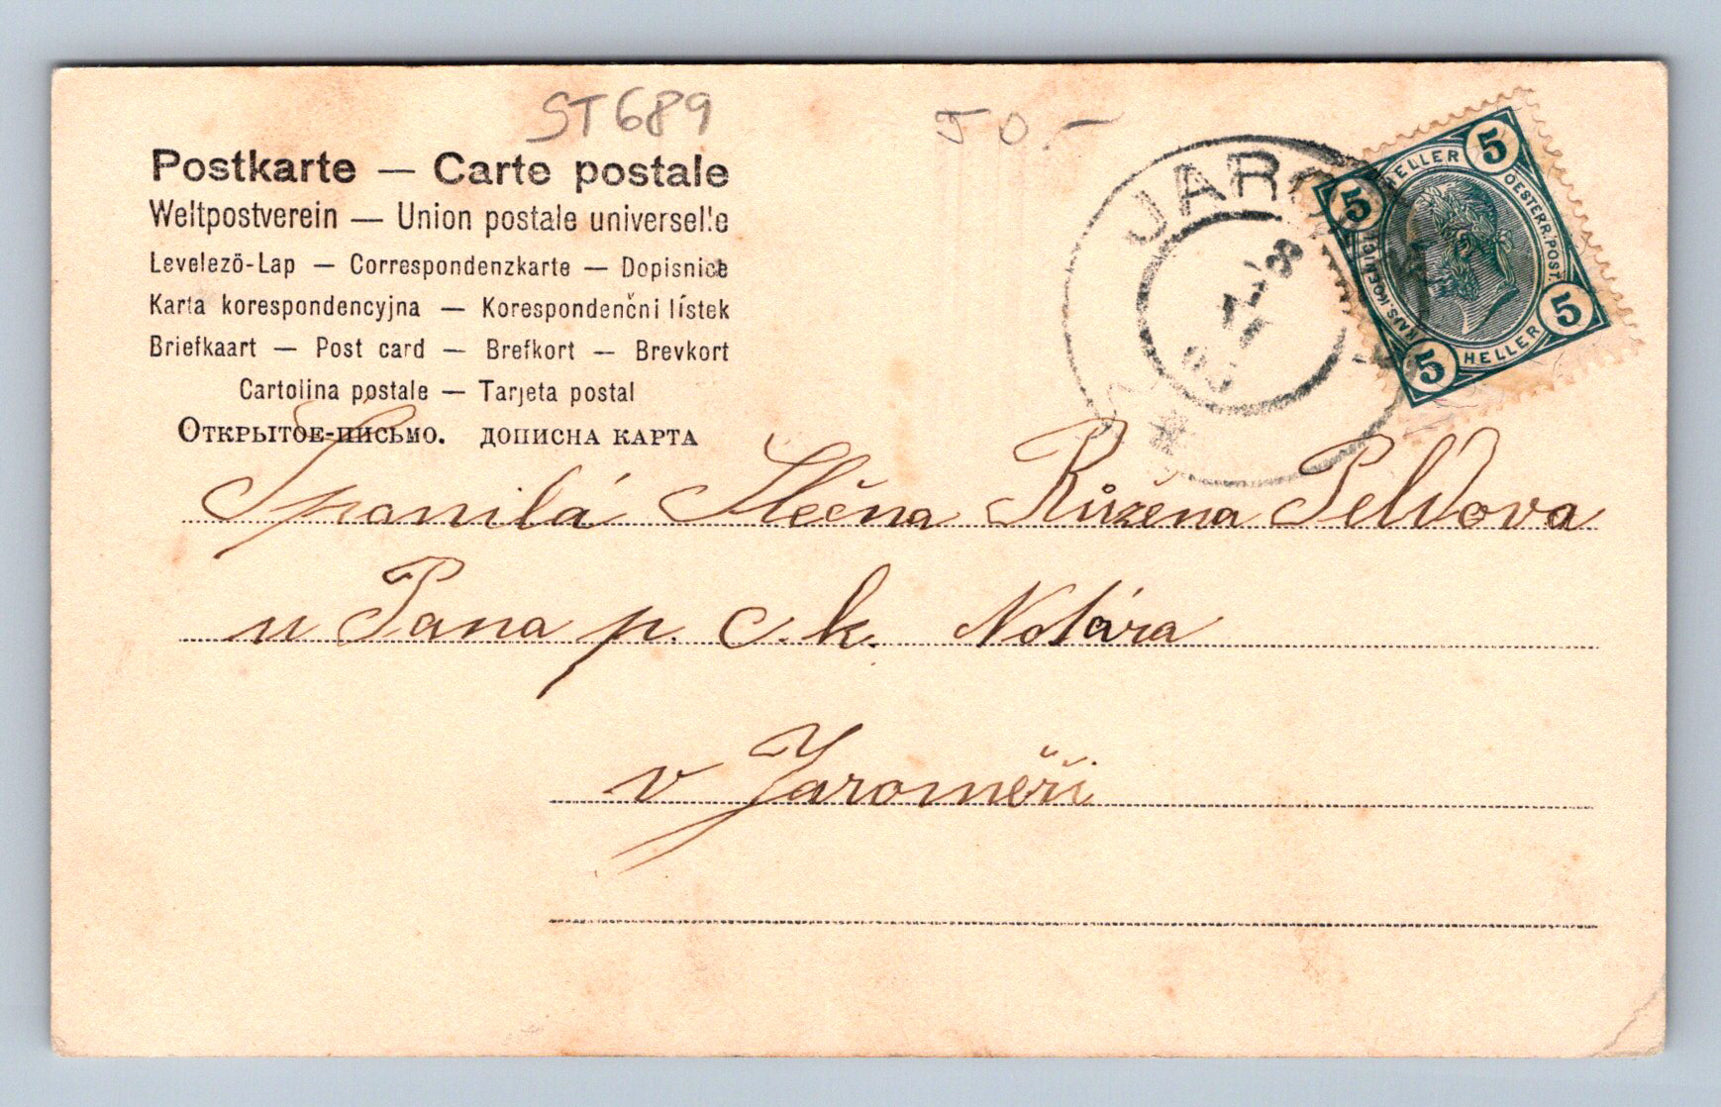 ST689
50.-
Postkarte — Carte postale
Weltpostverein — Union postale universelle
Levelező-Lap — Correspondenzkarte — Dopisnice
Karta korespondencyjna — Korespondenčni lístek
Briefkaart — Post card — Brefkort — Brevkort
Cartolina postale — Tarjeta postal
Открытое-письмо. дописна карта
JARO
5 HELLER 5
OESTERR. POST.
KAIS. KOENIGL.
5 HELLER 5
Spanilá Slečna Růžena
u Pana p. c. k. Notára
v Jaroměři